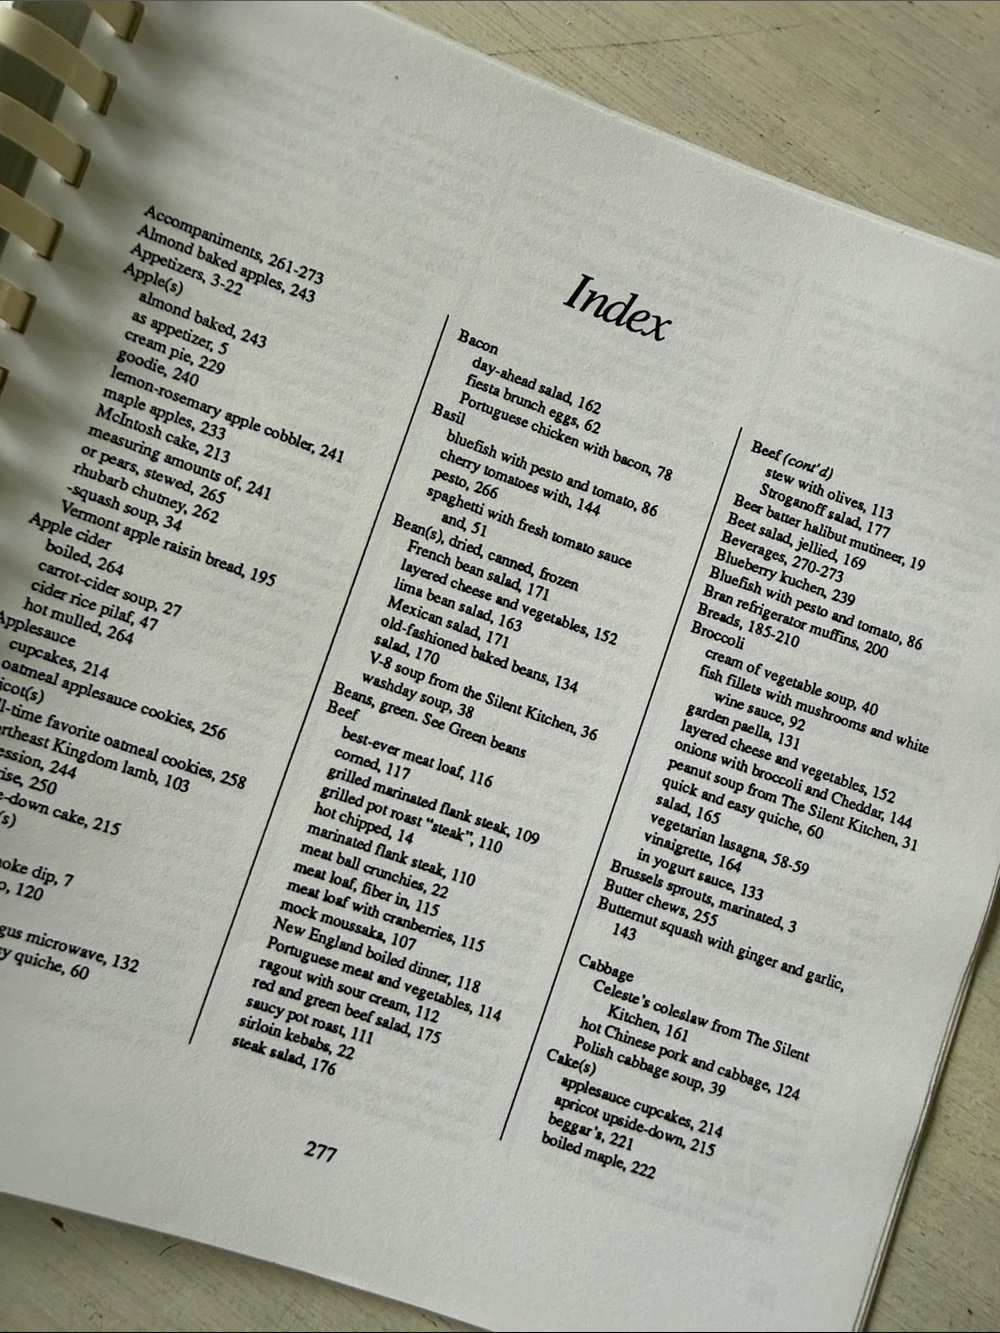 Index
Accompaniments, 261-273
Almond baked apples, 243
Appetizers, 3-22
Apple(s)
almond baked, 243
as appetizer, 5
cream pie, 229
goodie, 240
lemon-rosemary apple cobbler, 241
maple apples, 233
McIntosh cake, 213
measuring amounts of, 241
or pears, stewed, 265
rhubarb chutney, 262
-squash soup, 34
Vermont apple raisin bread, 195
Apple cider
boiled, 264
carrot-cider soup, 27
cider rice pilaf, 47
hot mulled, 264
Applesauce
cupcakes, 214
oatmeal applesauce cookies, 256
icot(s)
l-time favorite oatmeal cookies, 258
rtheast Kingdom lamb, 103
ession, 244
rise, 250
e-down cake, 215
(s)
oke dip, 7
o, 120
gus microwave, 132
y quiche, 60
Bacon
day-ahead salad, 162
fiesta brunch eggs, 62
Portuguese chicken with bacon, 78
Basil
bluefish with pesto and tomato, 86
cherry tomatoes with, 144
pesto, 266
spaghetti with fresh tomato sauce
and, 51
Bean(s), dried, canned, frozen
French bean salad, 171
layered cheese and vegetables, 152
lima bean salad, 163
Mexican salad, 171
old-fashioned baked beans, 134
salad, 170
V-8 soup from the Silent Kitchen, 36
washday soup, 38
Beans, green. See Green beans
Beef
best-ever meat loaf, 116
corned, 117
grilled marinated flank steak, 109
grilled pot roast "steak", 110
hot chipped, 14
marinated flank steak, 110
meat ball crunchies, 22
meat loaf, fiber in, 115
meat loaf with cranberries, 115
mock moussaka, 107
New England boiled dinner, 118
Portuguese meat and vegetables, 114
ragout with sour cream, 112
red and green beef salad, 175
saucy pot roast, 111
sirloin kebabs, 22
steak salad, 176
Beef (cont'd)
stew with olives, 113
Stroganoff salad, 177
Beer batter halibut mutineer, 19
Beet salad, jellied, 169
Beverages, 270-273
Blueberry kuchen, 239
Bluefish with pesto and tomato, 86
Bran refrigerator muffins, 200
Breads, 185-210
Broccoli
cream of vegetable soup, 40
fish fillets with mushrooms and white
wine sauce, 92
garden paella, 131
layered cheese and vegetables, 152
onions with broccoli and Cheddar, 144
peanut soup from The Silent Kitchen, 31
quick and easy quiche, 60
salad, 165
vegetarian lasagna, 58-59
vinaigrette, 164
in yogurt sauce, 133
Brussels sprouts, marinated, 3
Butter chews, 255
Butternut squash with ginger and garlic,
143
Cabbage
Celeste's coleslaw from The Silent
Kitchen, 161
hot Chinese pork and cabbage, 124
Polish cabbage soup, 39
Cake(s)
applesauce cupcakes, 214
apricot upside-down, 215
beggar's, 221
boiled maple, 222
277